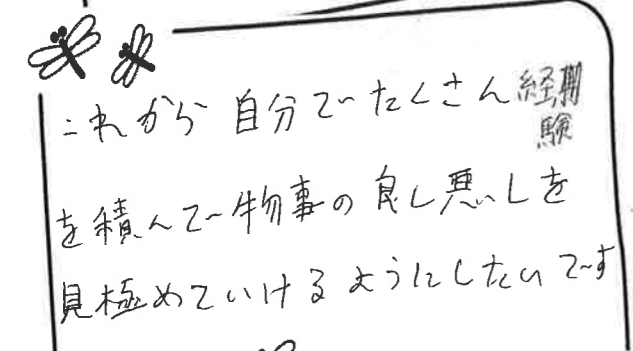 これから自分でたくさん経験
を積んで物事の良し悪しを
見極めていけるようにしたいです